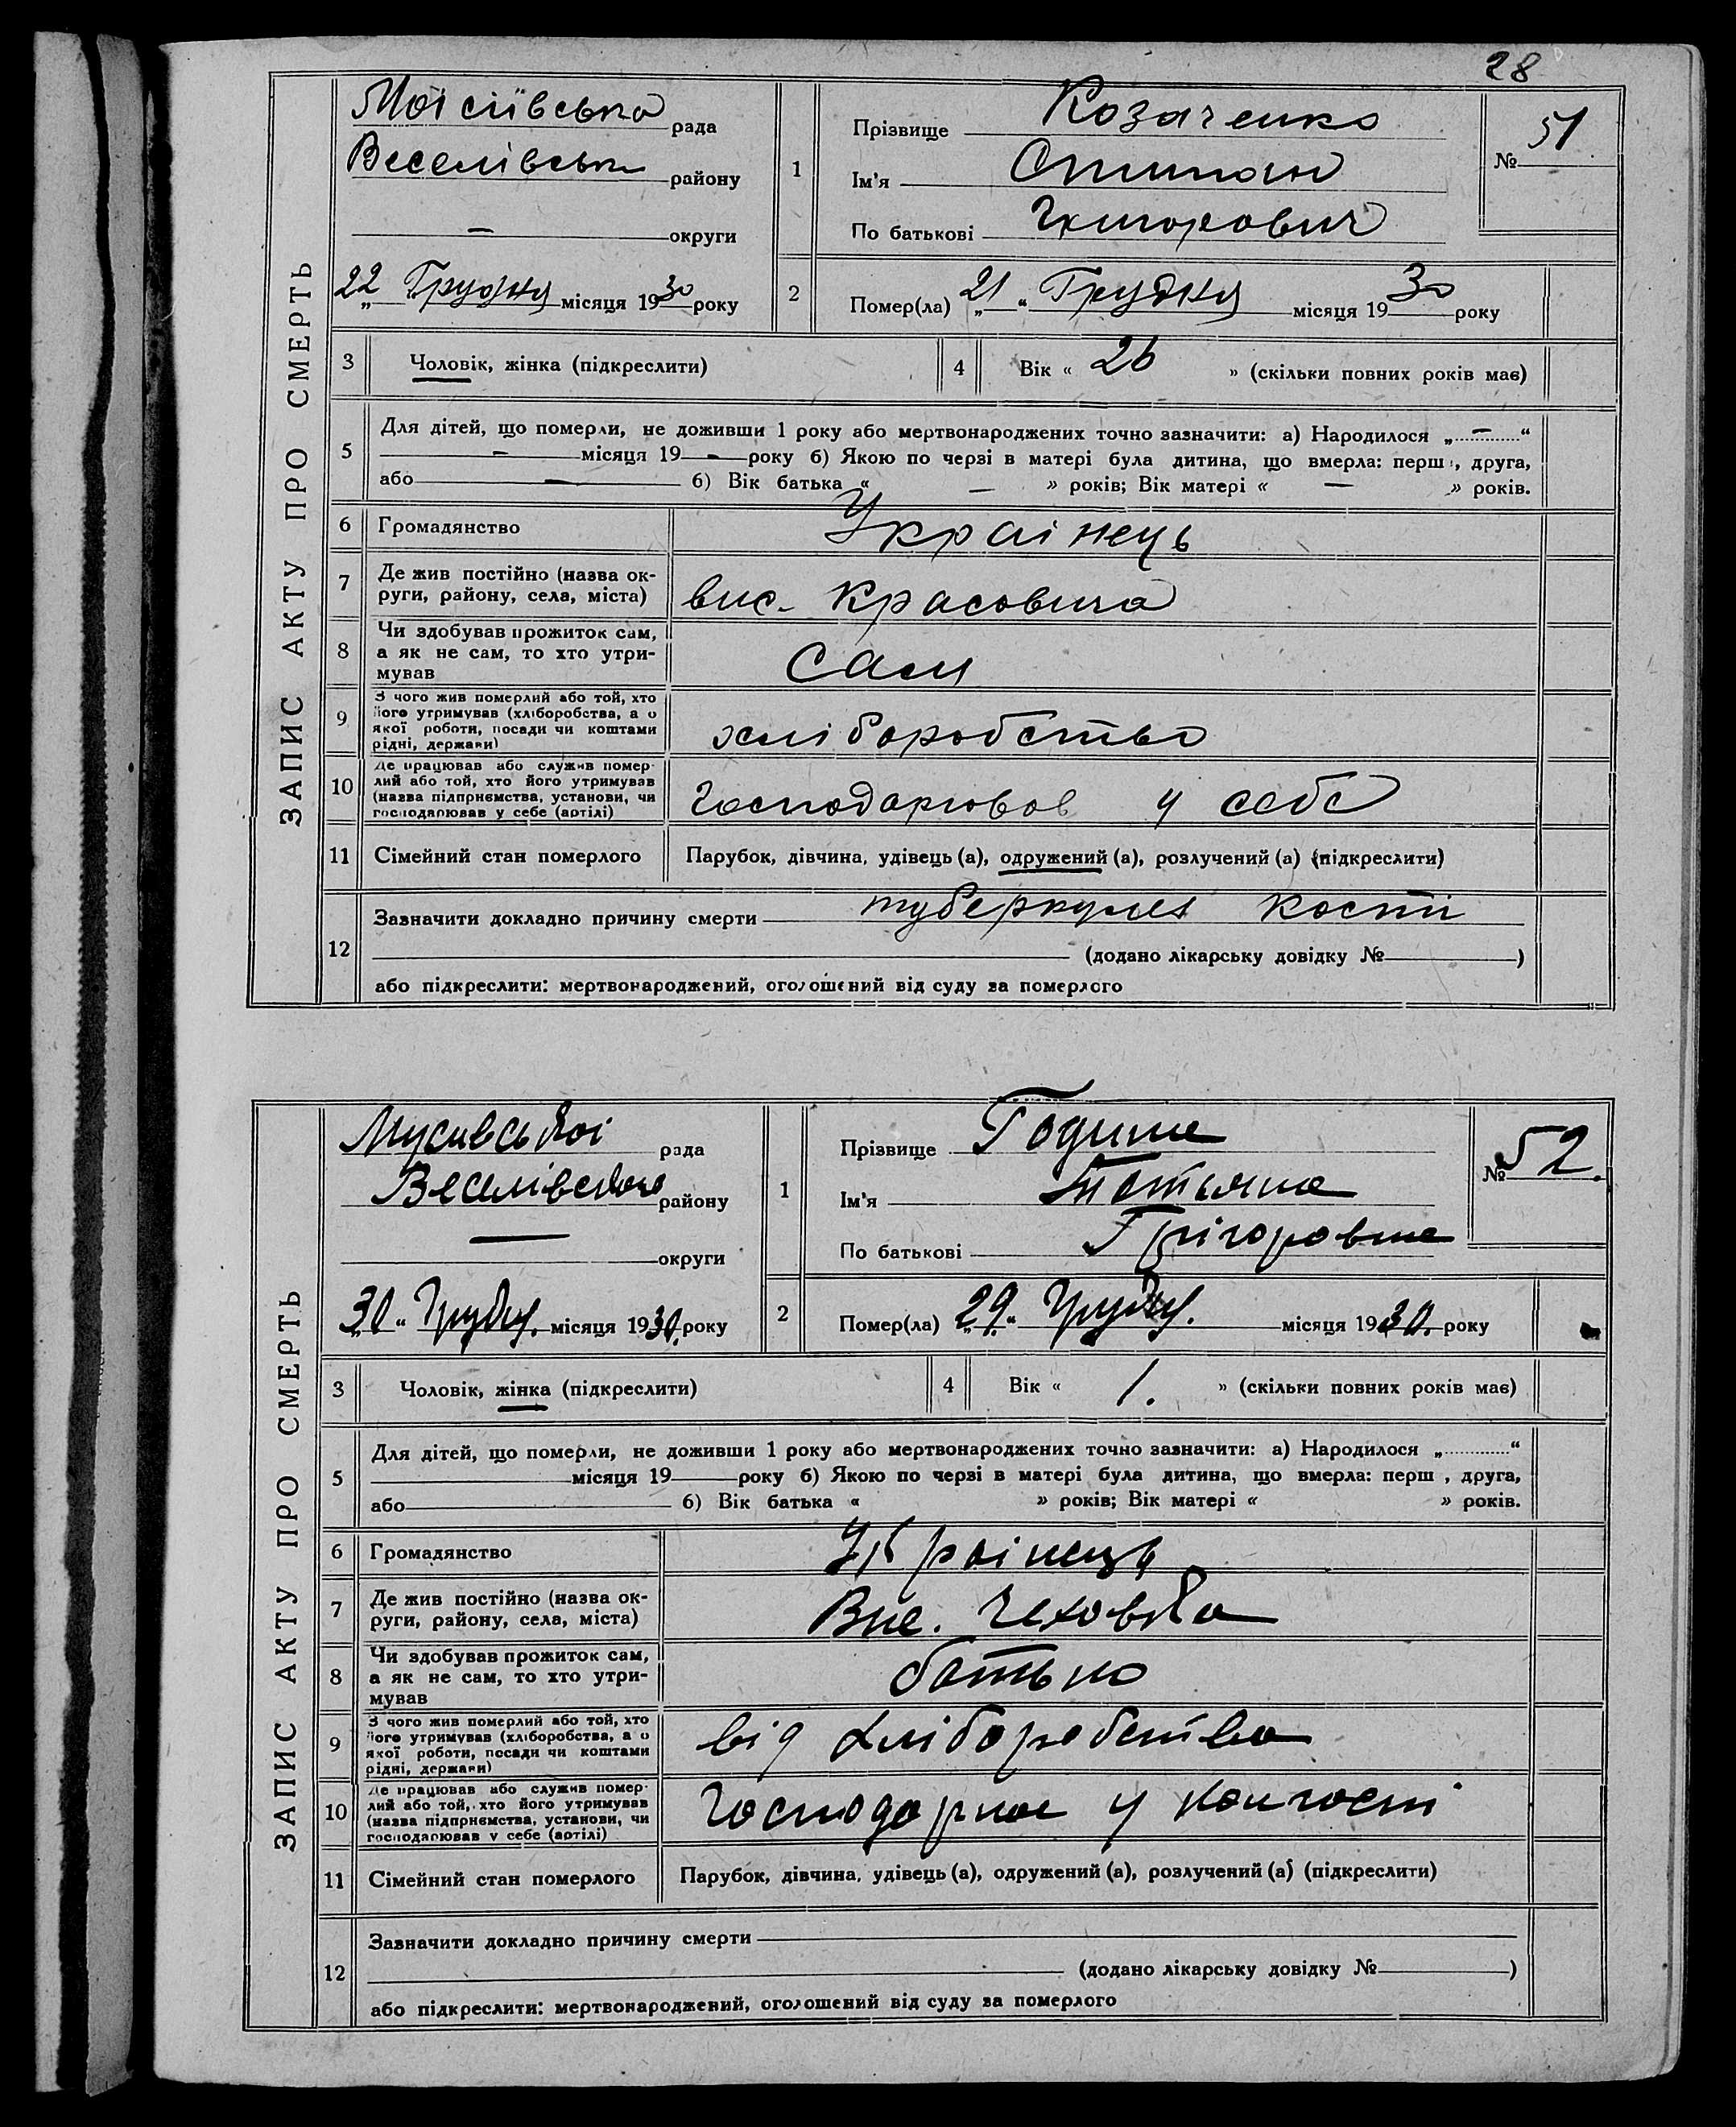 28
ЗАПИС АКТУ ПРО СМЕРТЬ
Моісіївська рада
Веселівськ району
— округи
22 „ Грудня місяця 1930 року
1
Прізвище Козаченко
Ім'я Степан
По батькові Григорович
№ 51
2
Помер(ла) „21“ Грудня місяця 1930 року
3 Чоловік, жінка (підкреслити)
4 Вік « 26 » (скільки повних років має)
5
Для дітей, що померли, не доживши 1 року або мертвонароджених точно зазначити: а) Народилося „ — “
— місяця 19 — року б) Якою по черзі в матері була дитина, що вмерла: перш , друга,
або — б) Вік батька « — » років; Вік матері « — » років.
6 Громадянство Украінець
7 Де жив постійно (назва ок-
руги, району, села, міста) вис.
8 Чи здобував прожиток сам,
а як не сам, то хто утри-
мував сам
9 З чого жив померлий або той, хто
його утримував (хліборобства, а о
якої роботи, посади чи коштами
рідні, держави) хліборобство
10 Де працював або служив помер-
лий або той, хто його утримував
(назва підприємства, установи, чи
господарював у себе (артілі) Господарював у себе
11 Сімейний стан померлого Парубок, дівчина, удівець (а), одружений (а), розлучений (а) (підкреслити)
12
Зазначити докладно причину смерти туберкульоз кости
(додано лікарську довідку № )
або підкреслити: мертвонароджений, оголошений від суду за померлого
ЗАПИС АКТУ ПРО СМЕРТЬ
Мусивської рада
Веселівського району
— округи
„30“ Грудня. місяця 1930. року
1
Прізвище Година
Ім'я Татьяна
По батькові Грігоровна
№ 52.
2
Помер(ла) „29.“ Грудня. місяця 1930. року
3 Чоловік, жінка (підкреслити)
4 Вік « 1. » (скільки повних років має)
5
Для дітей, що померли, не доживши 1 року або мертвонароджених точно зазначити: а) Народилося „ “
місяця 19 року б) Якою по черзі в матері була дитина, що вмерла: перш , друга,
або б) Вік батька « » років; Вік матері « » років.
6 Громадянство Украінець
7 Де жив постійно (назва ок-
руги, району, села, міста) Вис. Чеховка
8 Чи здобував прожиток сам,
а як не сам, то хто утри-
мував батько
9 З чого жив померлий або той, хто
його утримував (хліборобства, а о
якої роботи, посади чи коштами
рідні, держави) від хліборобства
10 Де працював або служив помер-
лий або той, хто його утримував
(назва підприємства, установи, чи
господарював у себе (артілі) у
11 Сімейний стан померлого Парубок, дівчина, удівець (а), одружений (а), розлучений (а) (підкреслити)
12
Зазначити докладно причину смерти
(додано лікарську довідку № )
або підкреслити: мертвонароджений, оголошений від суду за померлого